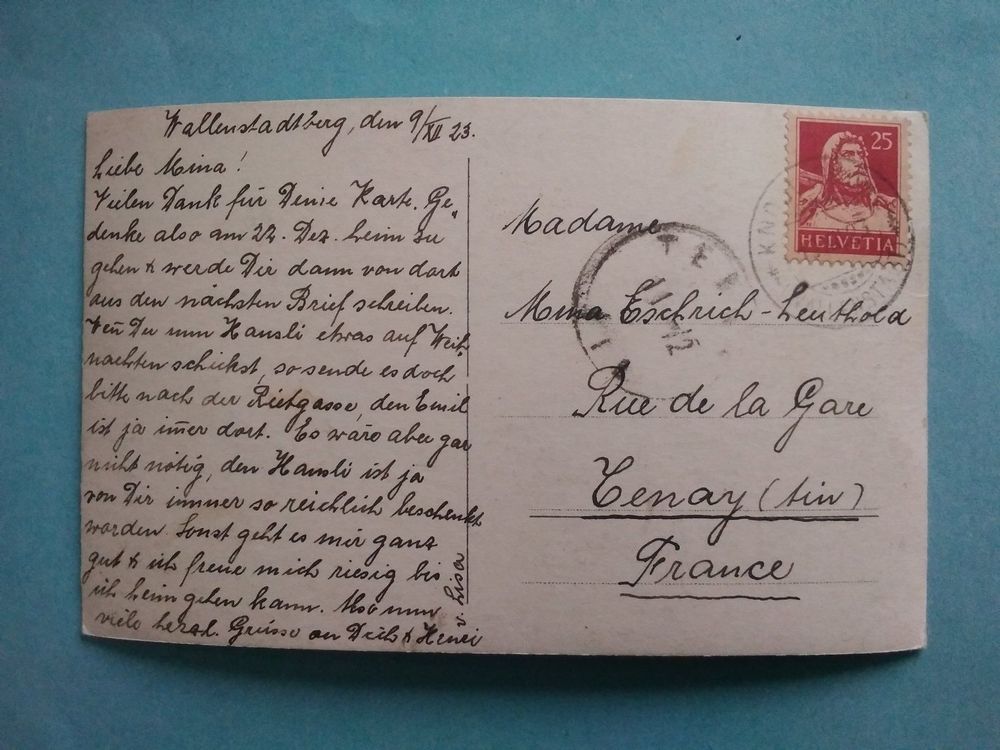 Wallenstadtberg, den 9/XII 23.
Liebe Mina!
Vielen Dank für Deine Karte. Ge„
denke also am 22. Dez. heim zu
gehen & werde Dir dann von dort
aus den nächsten Brief schreiben.
Wen̄ Du nun Hansli etwas auf Weih„
nachten schickst, so sende es doch
bitte nach der Rietgasse, den Emil
ist ja im̄er dort. Es wäre aber gar
nicht nötig, den Hansli ist ja
von Dir immer so reichlich beschenkt
worden. Sonst geht es mir ganz
gut & ich freue mich riesig bis
ich heim gehen kann. Also nun
viele herzl. Grüsse an Dich & Henri
v. Lisa
25
HELVETIA
Madame
Mina Eschrich-Leuthold
Rue de la Gare
Tenay (Ain)
France